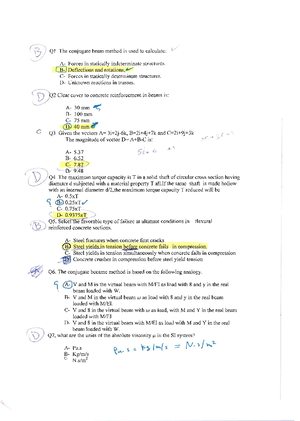 B Q1 The conjugate beam method is used to calculate:
A- Forces in statically indeterminate structures.
B- Deflections and rotations.
C- Forces in statically determinate structures.
D- Unknown reactions in trusses.
D Q2 Clear cover to concrete reinforcement in beams is:
A- 30 mm
B- 100 mm
C- 75 mm
D- 40 mm
C Q3 Given the vectors A= 3i+2j-6k, B=2i+4j+7k and C=2i+9j+3k
The magnitude of vector D= A+B-C is:
A- 5.37
B- 6.52
C- 7.82
D- 9.48
D Q4 The maximum torque capacity is T in a solid shaft of circular cross section having
diameter d subjected with a material property T all.If the same shaft is made hollow
with an internal diameter d/2,the maximum torque capacity T reduced will be
A- 0.5xT
B- 0.25xT
C- 0.75xT
D- 0.9375xT
B Q5. Select the favorable type of failure at ultimate conditions in flexural
reinforced concrete sections.
A- Steel fractures when concrete first cracks
B- Steel yields in tension before concrete fails in compression.
C- Steel yields in tension simultaneously when concrete fails in compression
D- Concrete crushes in compression before steel yield tension
A Q6. The conjugate beam method is based on the following analogy.
A- V and M in the virtual beam with M/EI as load with θ and y in the real
beam loaded with W.
B- V and M in the virtual beam ω as load with θ and y in the real beam
loaded with M/EI
C- V and θ in the virtual beam with ω as load, with M and Y in the real beam
loaded with M/EI
D- V and θ in the virtual beam with M/EI as load with M and Y in the real
beam loaded with W.
D Q7, what are the units of the absolute viscosity μ in the SI system?
A- Pa.s
B- Kg/m/s
C- N.s/m²
Pa.s = kg/m/s = N.s/m²